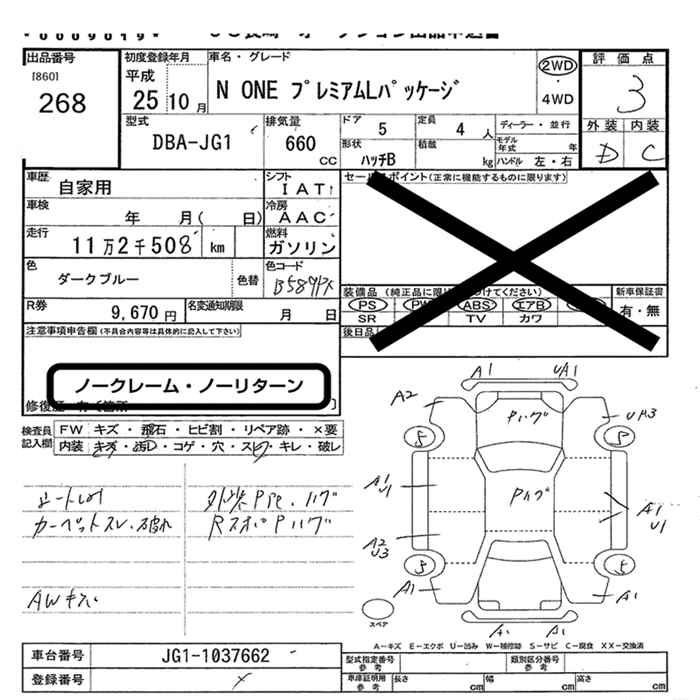 出品番号
[860]
268
初度登録年月
平成
25年10月
車名・グレード
N ONE プレミアムLパッケージ
2WD
・
4WD
評価点
3
外装 内装
D C
型式
DBA-JG1
排気量
660
cc
ドア
5
定員
4人
形状
ハッチB
積載
kg
ディーラー・並行
モデル年式
年
ハンドル 左・右
車歴
自家用
シフト
IAT
車検
年 月( 日)
冷房
AAC
走行
11万2千508
km
燃料
ガソリン
色
ダークブルー
色替
色コード
B589PX
R券
9,670円
名変通知期限
月 日
セールスポイント(正常に機能するものに限ります)
装備品
PS
ABS
エアB
SR
TV
カワ
新車保証書
有・無
後日品
注意事項申告欄(不具合内容等は具体的に記入して下さい)
ノークレーム・ノーリターン
修復歴
検査員記入欄
FW キズ・飛石・ヒビ割・リペア跡・×要
内装 キズ・汚・コゲ・穴・スレ・キレ・破レ
カーペットスレ・破れ
AWキズ
A1
UA1
A2
Pハゲ
UP3
5
5
A1
U1
Pハゲ
A1
U1
A2
U3
5
5
A1
A1
A1
A1
スペア
A-キズ E-エクボ U-凹み W-補修跡 S-サビ C-腐食 XX-交換済
車台番号
JG1-1037662
登録番号
型式指定番号
参考
類別区分番号
参考
車庫証明用
参考
長さ
cm
幅
cm
高さ
cm